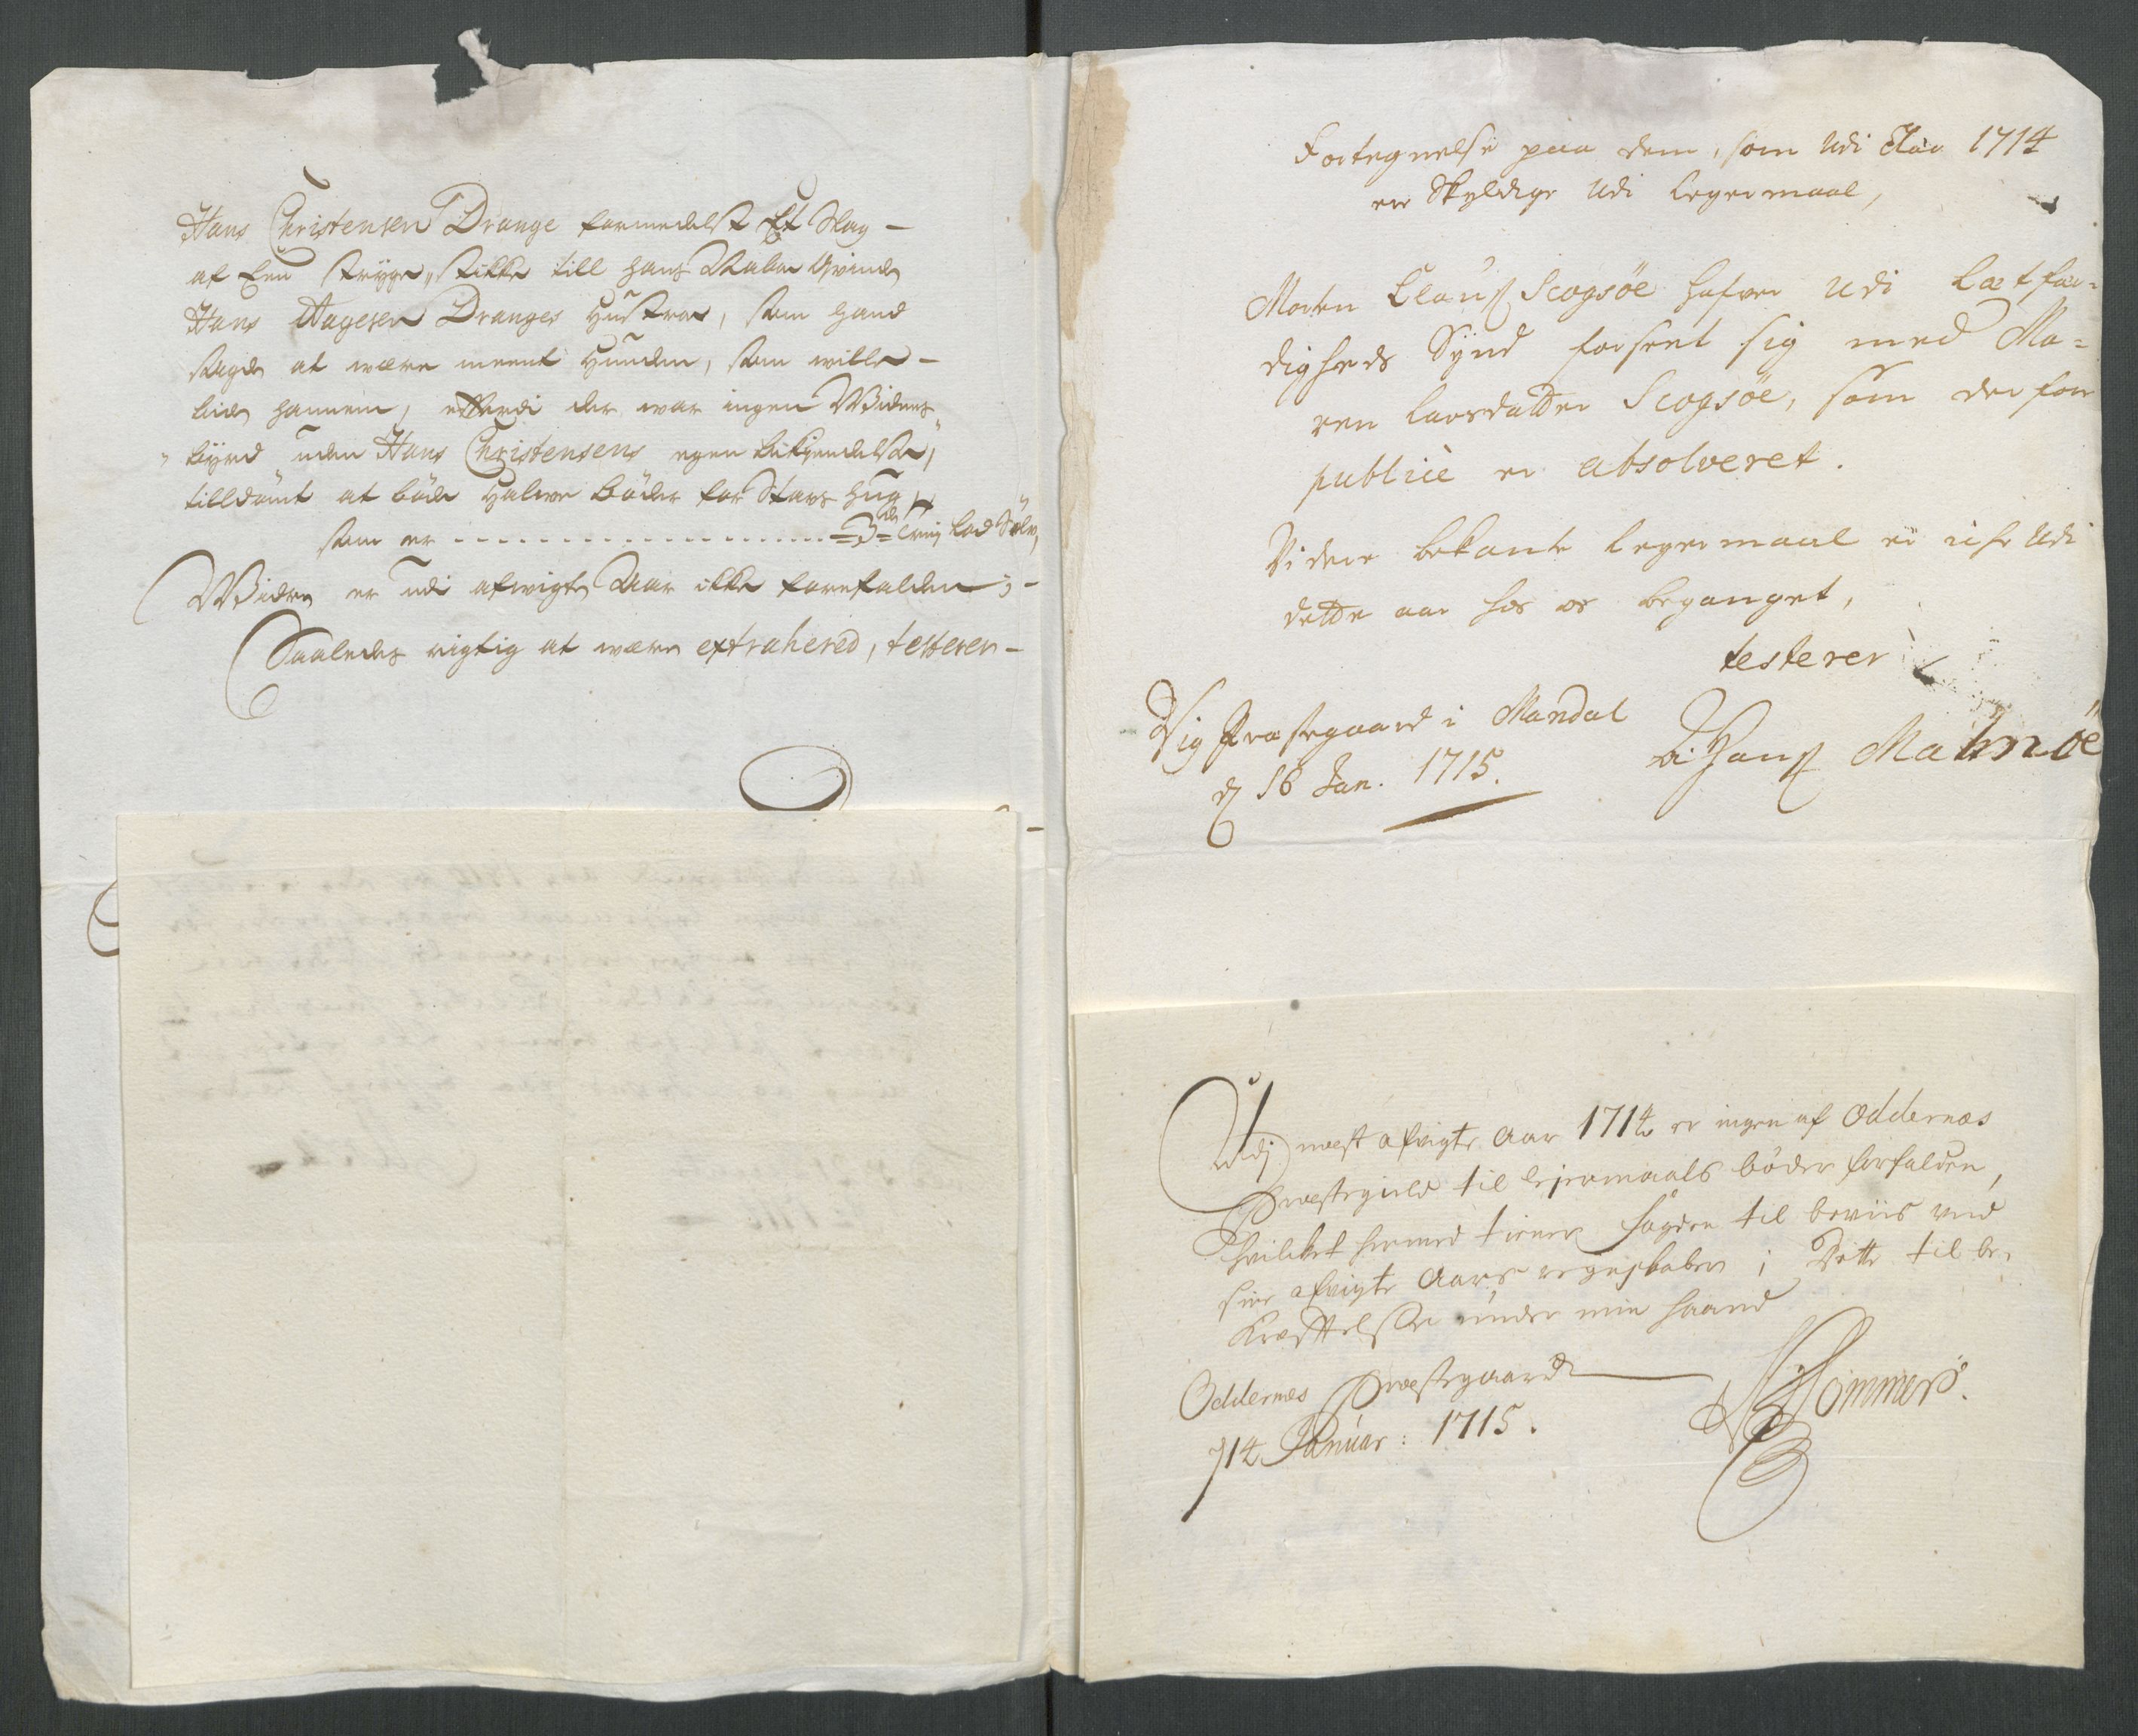 Hans Christensen Drange formedelst Et Slag -
af Een Trÿge, stikke till hans Naboe Qvinde
Hans Aagesen Dranges Hustroe, som hand
sagde at være meent Hunden, som wille -
biide hannem, efterdi der war ingen Widnes-
bÿrd uden Hans Christensens egen bekiendelse,
tilldömt at böde Halwe böder for Stavs hug,
som er - - - - - - - - - - - - - = 3de Trei Lod Sölv,
Widere er udi afwigte Aar ikke forefalden; -
Saaledes rigtig at være extrahered, testerer -
Fortegnelse paa dem, som Udi Aar 1714
ere Skyldige Udi Legermaal,
Morten Clausß Scogsöe hafver Udi Letfær-
digheds Synd forseet sig med Ma-
ren Larsdatter Scogsöe, som derfor
publicè er absolveret.
Videre bekante Legermaal er icke Udi
dette aar hos os beganget,
testerer
Vig Præstegaard i Mandal
d 16 Jan. 1715.
Hansß Malmöe
Udj næst afvigte Aar 1714 er ingen af Oddernæs
Præstegield til lejermaals böder forfalden,
hvilcket hermed tiener fogden til beviis ved
sine afvigte Aars regnskaber; Dette til be-
kræfftelse under min haand
Oddernæs Præstegaard
d 14 Januar: 1715.
Sommerß.